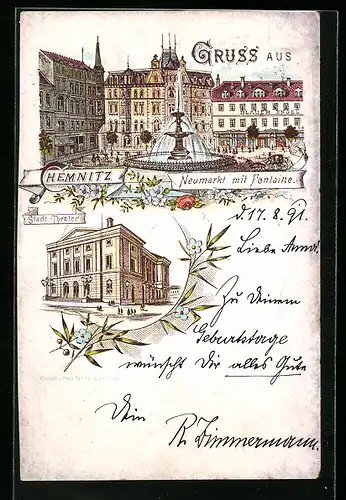 GRUSS AUS
CHEMNITZ
Neumarkt mit Fontaine.
Stadt-Theater
d. 17. 8. 91.
Liebe
Zu Deinem
Geburtstage
wünscht Dir alles Gute
Dein
R. Zimmermann.